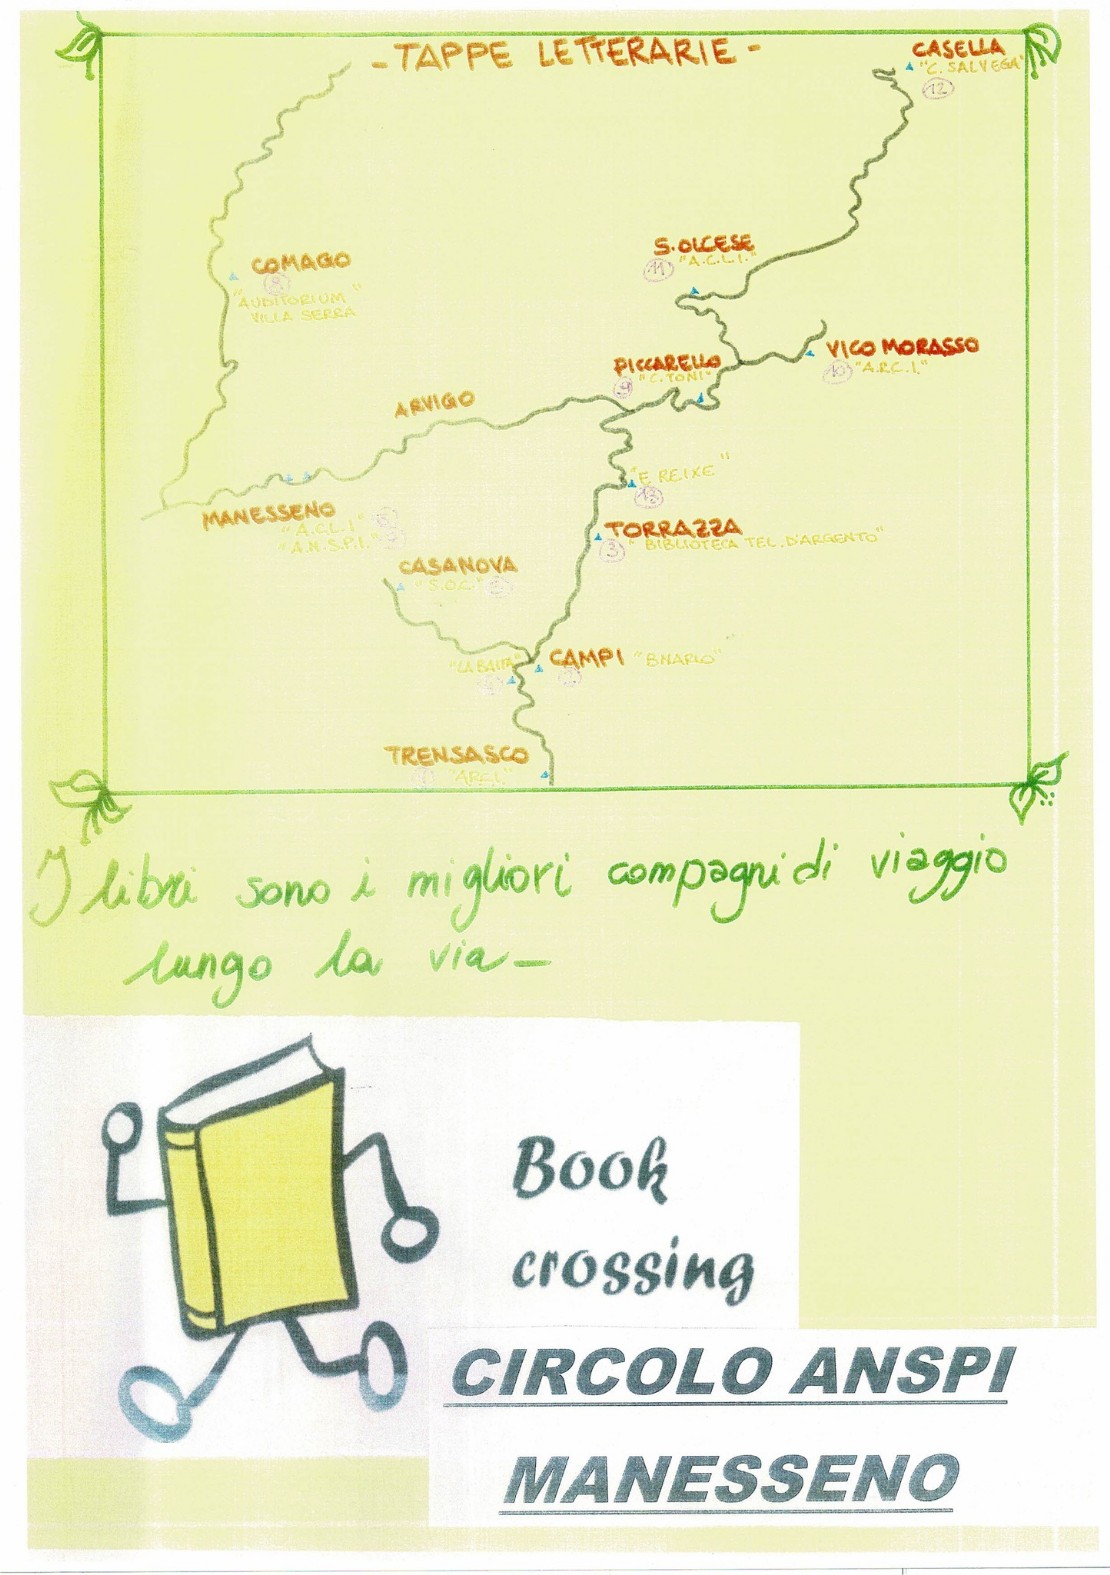 - TAPPE LETTERARIE -
CASELLA
"C. SALVEGA"
12
S. OLCESE
11 "A.C.L.I."
COMAGO
8
"AUDITORIUM"
VILLA SERRA
VICO MORASSO
10 "A.R.C.I."
PICCARELLO
9 "C. TONI"
ARVIGO
"E REIXE"
13
MANESSENO
"A.C.L.I."
"A.N.S.P.I."
TORRAZZA
3 "BIBLIOTECA TEL. D'ARGENTO"
CASANOVA
"S.O.C."
"LA BAITA"
CAMPI
TRENSASCO
"ARCI"
I libri sono i migliori compagni di viaggio
lungo la via -
Book
crossing
CIRCOLO ANSPI
MANESSENO